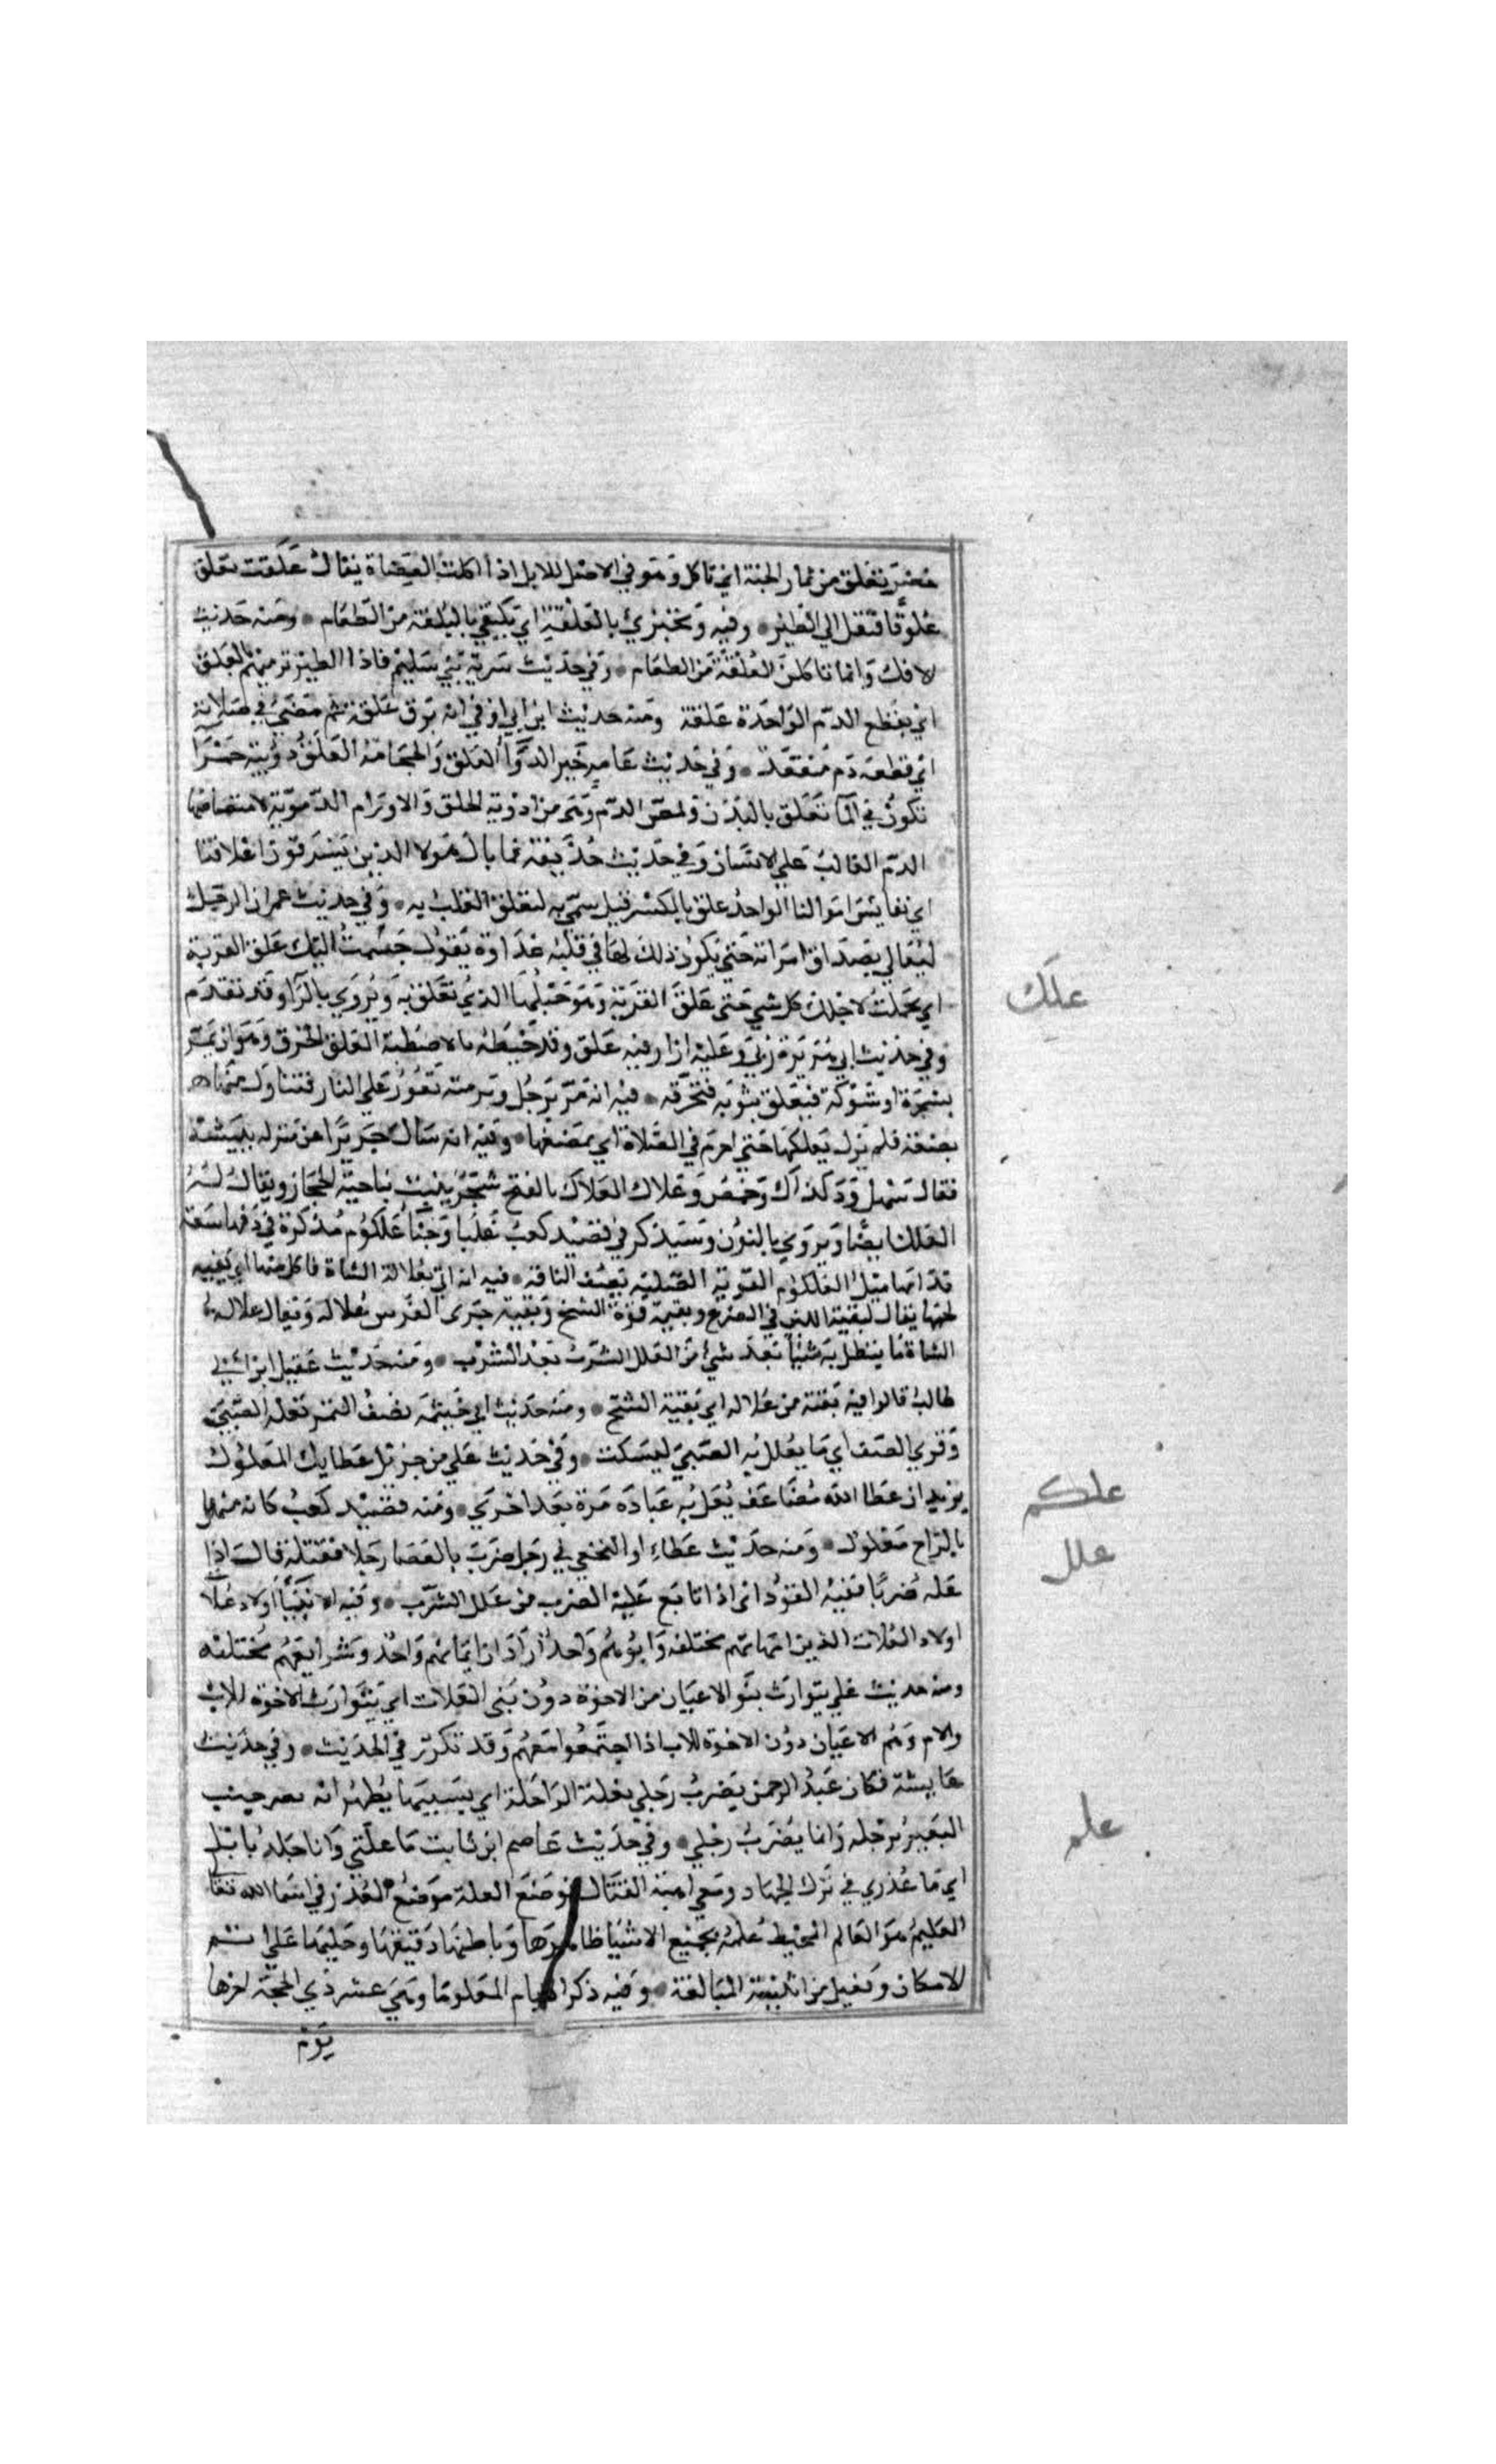 خضر تعلق من ثمار الجنة اي تاكل وهو في الاصل للابل اذا اكلت العضاة يقال علقت تعلق
علوقا فنقل الي الطير وفيه وتجتزي بالعلقة اي تكتفي بالبلغة من الطعام ومنه حديث
الافك وانما تاكلن العلقة من الطعام وفي حديث سرية بني سليم فاذا الطير ترميهم بالعلق
اي بقطع الدم الواحدة علقة ومنه حديث ابن ابي اوفي انه بزق علقة ثم مضي في صلاته
اي قطعة دم منعقد وفي حديث عامر خير الدوا العلق والحجامة العلق دويبة حمرا
تكون في الما تعلق بالبدن وتمص الدم وهي من ادوية الحلق والاورام الدموية لامتصاصها
الدم الغالب علي الانسان وفي حديث حذيفة فما بال هولا الذين يسرقون اعلاقنا
اي نفايس اموالنا الواحد علق بالكسر قيل سمي به لتعلق القلب به وفي حديث عمر ان الرجل
ليغالي بصداق امراته حتي يكون ذلك لها في قلبه عداوة يقول جشمت اليك علق القربة
اي تحملت لاجلك كل شي حتي علق القربة وهو حبلها الذي تعلق به ويروي بالرا وقد تقدم
وفي حديث ابي هريرة رئي وعليه ازار فيه علق وقد خيطه بالاصطبة العلق الخرق وهو ان يمر
بشجرة او شوكة فيعلق بثوبه فتخرقه فيه انه مر برجل وبرمته تفور علي النار فتناول منها
بضعة فلم يزل يعلكها حتي احرم في الصلاة اي يمضغها وفيه انه سال جريرا عن منزله ببيشة
فقال سهل ودكداك وحمض وعلاك العلاك بالفتح شجر ينبت بناحية الحجاز ويقال له
العلك ايضا ويروي بالنون وسيذكر في قصيد كعب غلبا وجنا علكوم مذكرة في دفها سعة
قدامها ميل العلكوم القوية الصلبة يصف الناقة فيه انه اتي بعلالة الشاة فاكل منها اي بقية
لحمها يقال لبقية اللبن في الضرع وبقية قوة الشيخ وبقية جري الفرس علالة ويقال علالة
الشاة ما يتعلل به شيا بعد شي من العلل الشرب بعد الشرب ومنه حديث عقيل ابن ابي
طالب قالوا فيه بقية من علالة اي بقية الشيخ ومنه حديث ابي حثمة يصف التمر تعلة الصبي
وقري الضيف اي ما يعلل به الصبي ليسكت وفي حديث علي من جزيل عطايك المعلول
يريد ان عطا الله مضاعف يعل به عباده مرة بعد اخري ومنه قصيد كعب كانه منهل
بالراح معلول ومنه حديث عطاء او النخعي في رجل ضرب بالعصا رجلا فقتله قال اذا
عله ضربا ففيه القود اي اذا تابع عليه الضرب من علل الشرب وفيه الانبيا اولاد علا
اولاد العلات الذين امهاتهم مختلفة وابوهم واحد اراد ان ايمانهم واحد وشرايعهم مختلفة
ومنه حديث علي يتوارث بنو الاعيان من الاخوة دون بني العلات اي يتوارث الاخوة للاب
والام وهم الاعيان دون الاخوة للاب اذا اجتمعوا معهم وقد تكرر في الحديث وفي حديث
عايشة فكان عبد الرحمن يضرب رجلي بعلة الراحلة اي بسببها يظهر انه يضرب جنب
البعير برجله وانما يضرب رجلي وفي حديث عاصم ابن ثابت ما علتي وانا جلد نابل
اي ما عذري في ترك الجهاد ومعي اهبة القتال فوضع العلة موضع العذر في اسما الله تعا
العليم هو العالم المحيط علمه بجميع الاشيا ظاهرها وباطنها دقيقها وجليلها علي اتم
الامكان وفعيل من ابنية المبالغة وفيه ذكر الايام المعلومات وهي عشر ذي الحجة اخرها
يوم
علك
علكم
علل
علم